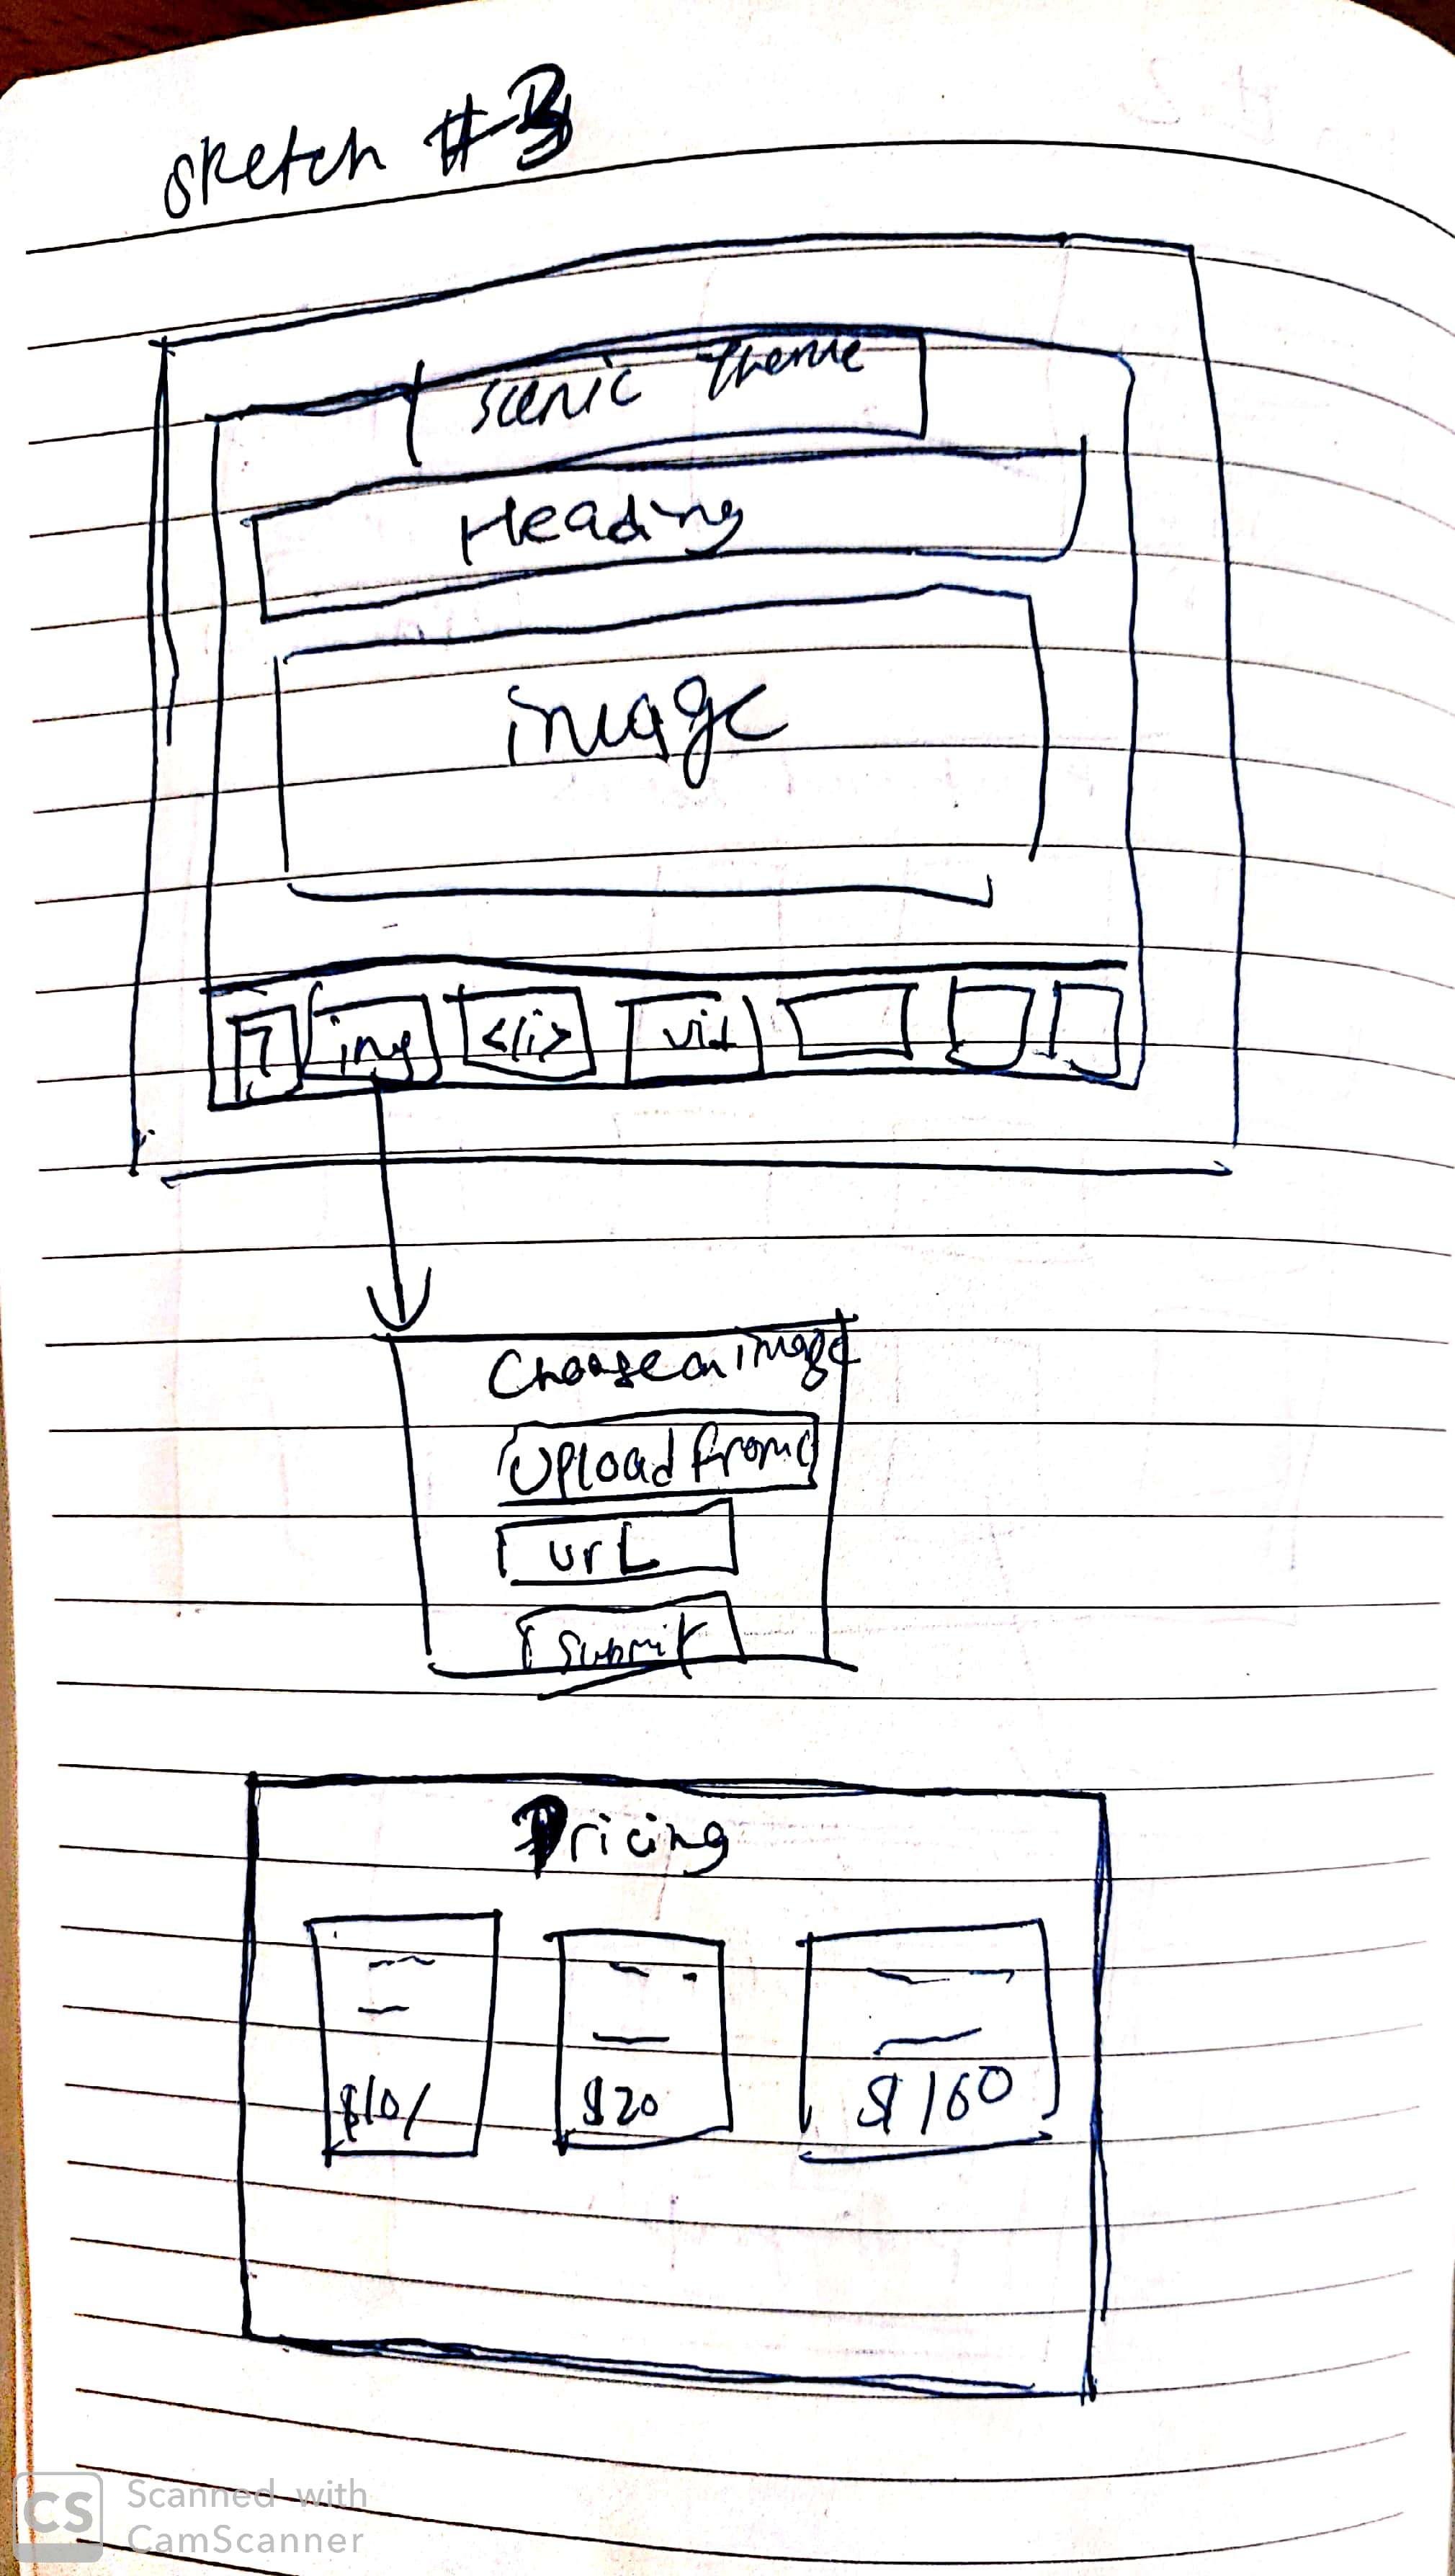 sketch #3
scenic Theme
Heading
image
T img </i> vid
Choose an image
Upload from
url
submit
Pricing
$10/ $20 $160
CS Scanned with
CamScanner